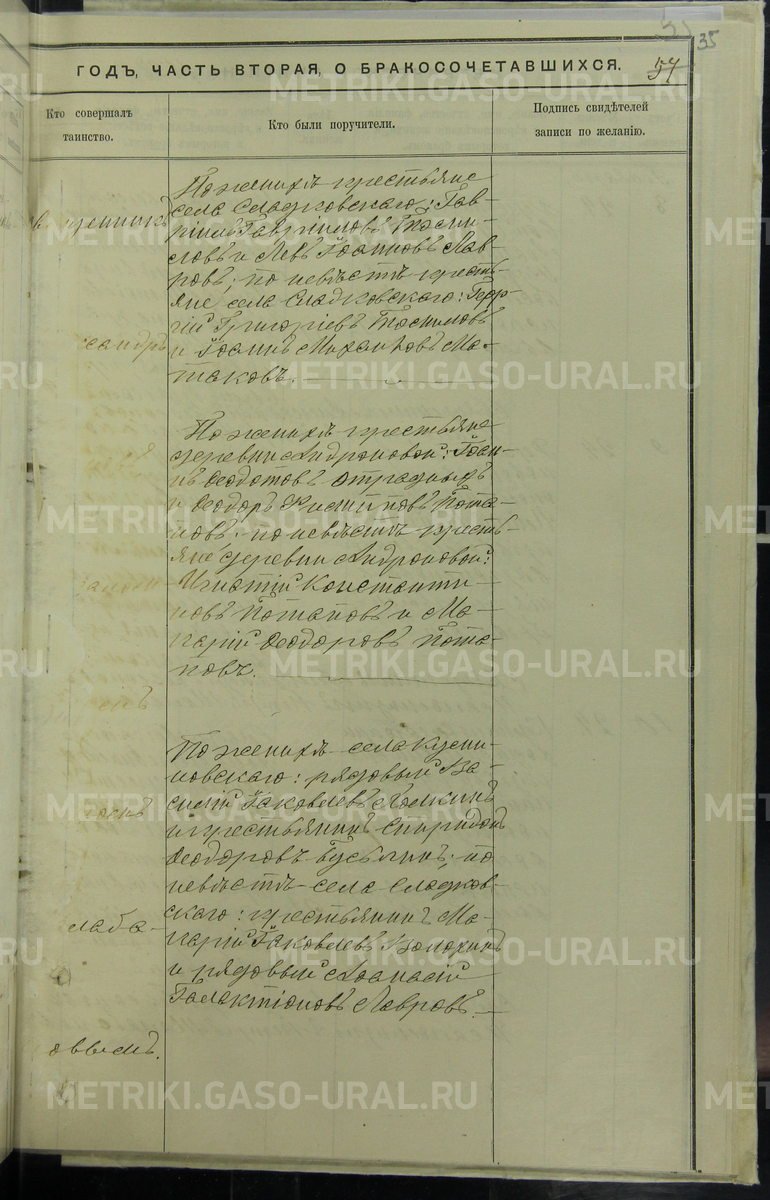 35
ГОДЪ, ЧАСТЬ ВТОРАЯ, О БРАКОСОЧЕТАВШИХСЯ.
57
Кто совершалъ
таинство.
Кто были поручители.
Подпись свидѣтелей
записи по желанію.
По женихѣ крестьяне
села Сладковскаго: Гав-
ріилъ Гавріиловъ
и Левъ Іоанновъ Лав-
ровъ; по невѣстѣ кресть-
яне села Сладковскаго: Геор-
гій Григоріевъ
и Іоаннъ Михаиловъ Ма-
таковъ.
По женихѣ крестьяне
деревни Андроновой: Іоан-
нъ Ѳеодотовъ Отрадныхъ
и Ѳеодоръ Пота-
повъ; по невѣстѣ кресть-
яне деревни Андроновой:
Игнатій Константи-
новъ Потаповъ и Ма-
карій Ѳеодоровъ Пота-
повъ.
По женихѣ села
рядовый Ва-
силій Іаковлевъ
и крестьянинъ Спиридонъ
Ѳеодоровъ по
невѣстѣ села Сладков-
скаго: крестьянинъ Ма-
карій Іаковлевъ Волохинъ
и рядовый Аѳанасій
Галактіоновъ Лавровъ.
METRIKI.GASO-URAL.RU